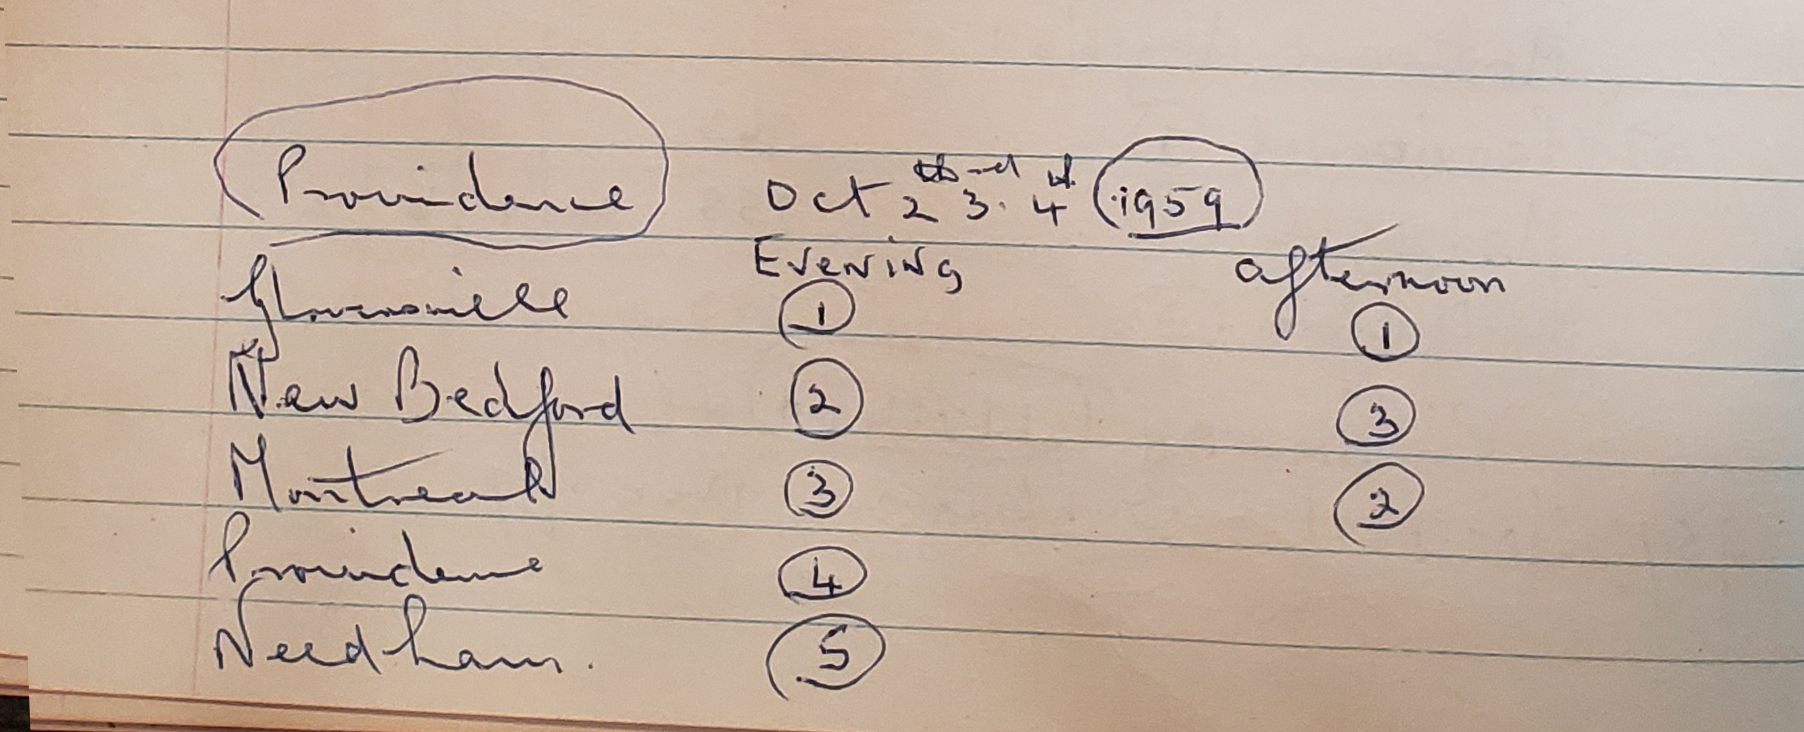 Providence Oct 2 3rd 4th 1959
Evening afternoon
Gloversville 1 1
New Bedford 2 3
Montreal 3 2
Providence 4
Needham. 5